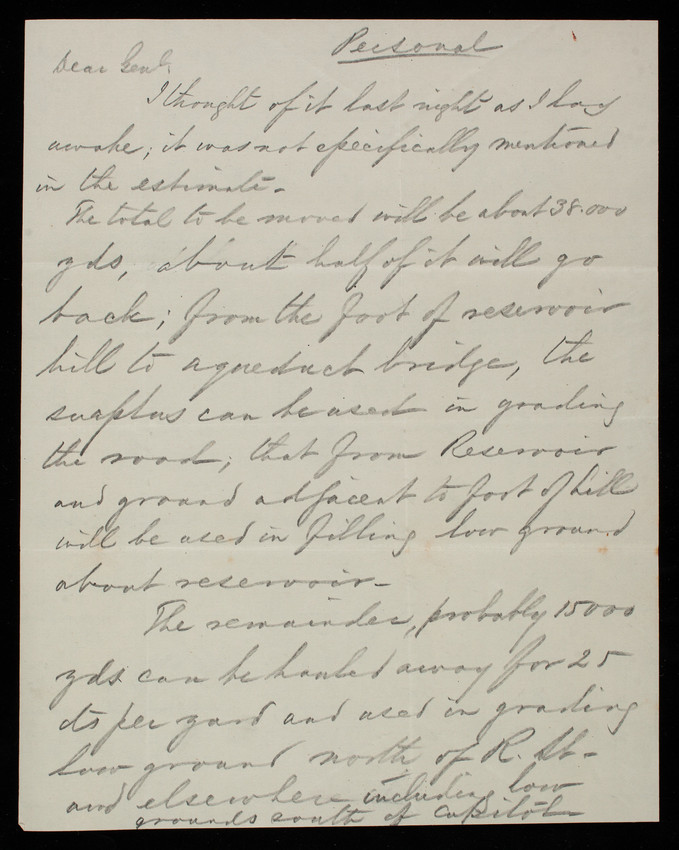 Personal
Dear Genl.
I thought of it last night as I lay
awake; it was not specifically mentioned
in the estimate.
The total to be moved will be about 38.000
yds, about half of it will go
back; from the foot of reservoir
hill to aqueduct bridge, the
surplus can be used in grading
the road; that from Reservoir
and ground adjacent to foot of hill
will be used in filling low ground
about reservoir-
The remainder, probably 15000
yds can be hauled away for 25
cts per yard and used in grading
low ground north of R. St-
and elsewhere including low
grounds south of Capitol-